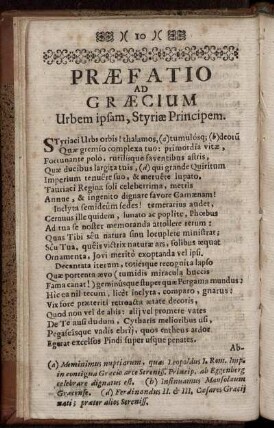 )( 10 )(
PRÆFATIO
AD
GRÆCIUM
Urbem ipsam, Styriæ Principem.
STyriaci Urbs orbis! thalamos, (a) tumulósq; (b) deorũ
Quæ gremio complexa tuo: primordia vitæ,
Fortunante polo, rutilisque faventibus astris,
Quæ ducibus largita tuis, (d) qui grande Quiritum
Imperium tenuere suo, & meruêre lupato,
Tauriaci Regina soli celeberrima, metris
Annue, & ingenito dignare favore Camænam!
Inclyta semideûm sedes! temerarius audet,
Cernuus ille quidem, lunato ac poplite, Phœbus
Ad tua se noster memoranda attollere rerum:
Quas Tibi seu natura sinu locuplete ministrat;
Seu Tua, queîs victrix naturæ ars, solibus æquat
Ornamenta. Jovi meritò exoptanda vel ipsi.
Decantata iterum, totiesque recognita lapso
Quæ portenta ævo (tumidis miracula buccis
Fama canat!) geminúsque super quæ Pergama mundus:
Hic ea nil tecum, licèt inclyta, comparo, gnarus:
Vix fore præteriti removâsse ætate decoris,
Quod non vel de abis: alij vel promere vates
De Te ausi dudum, Cytharis melioribus usi,
Pegaseisque vadis ebrij, quos entheus ardor
Egerat excelsus Pindi super usque penates.
Ab-
(a) Meminimus nuptiarum, quas Leopoldus I. Rom. Imp.
in contigua Græciæ arce Sereniss. Princip. ab Eggenberg
celebrare dignatus est. (b) Insinuamus Mausolæum
Græcense. (d) Ferdinandus II. & III. Cæsares Græcij
nati; præter alios Sereniss.